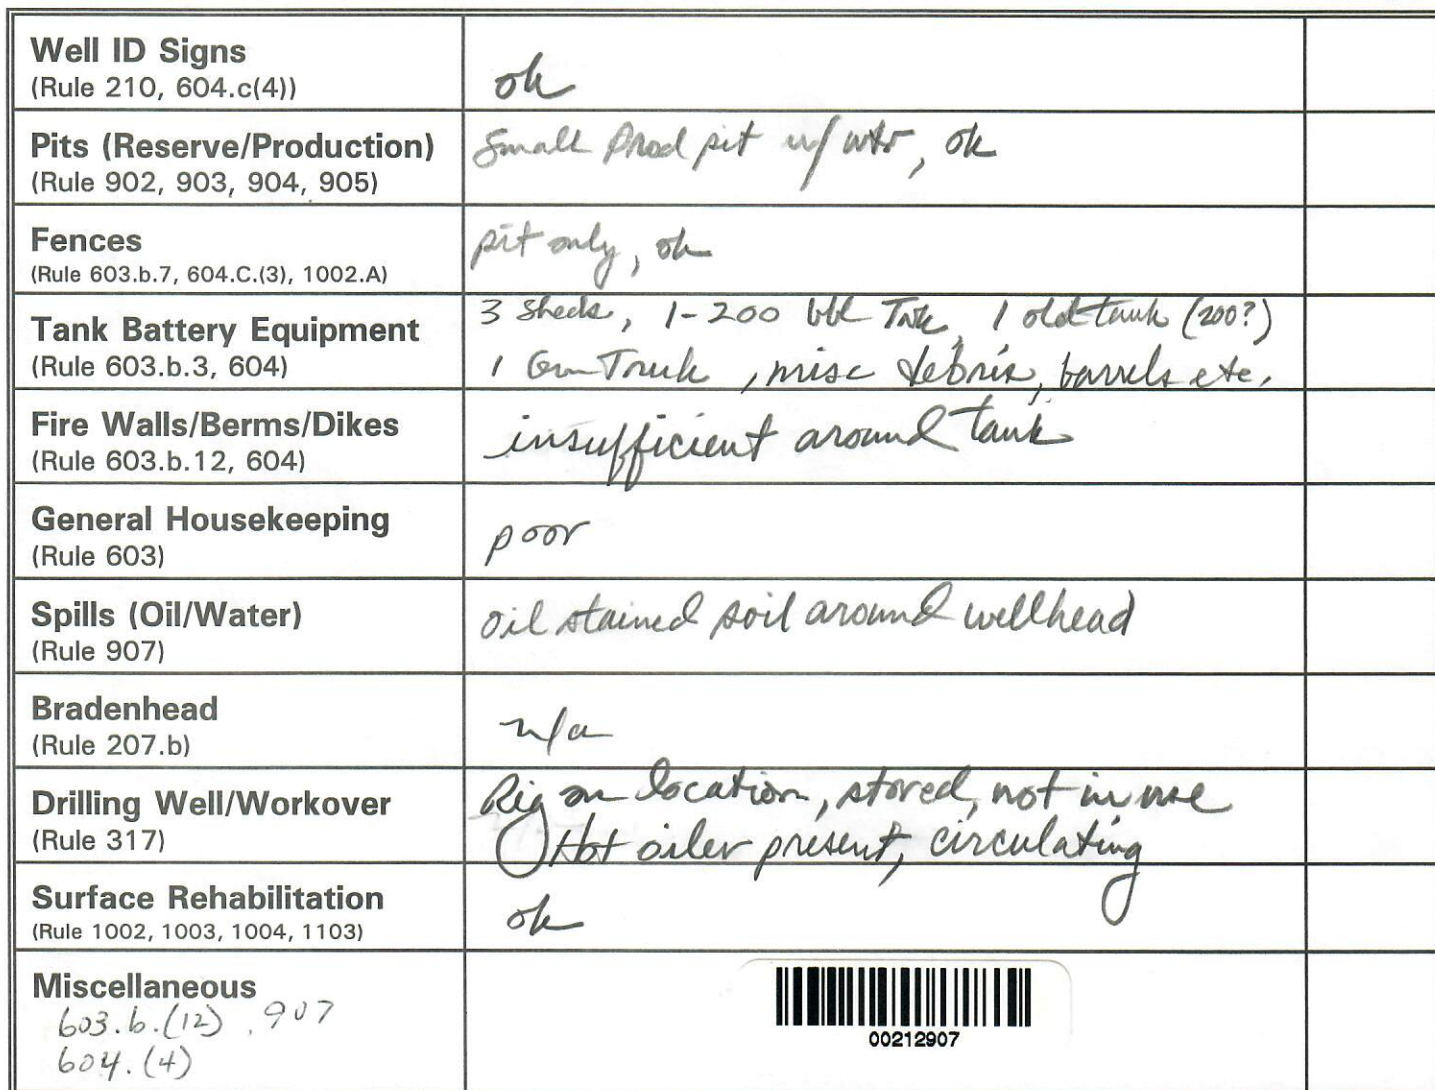 Well ID Signs
(Rule 210, 604.c(4))
ok
Pits (Reserve/Production)
(Rule 902, 903, 904, 905)
Small Prod pit w/ wtr, ok
Fences
(Rule 603.b.7, 604.C.(3), 1002.A)
pit only, ok
Tank Battery Equipment
(Rule 603.b.3, 604)
3 Sheds, 1-200 bbl Tnk, 1 old tank (200?)
1 Truck, misc debris, barrels etc.
Fire Walls/Berms/Dikes
(Rule 603.b.12, 604)
insufficient around tank
General Housekeeping
(Rule 603)
poor
Spills (Oil/Water)
(Rule 907)
oil stained soil around wellhead
Bradenhead
(Rule 207.b)
n/a
Drilling Well/Workover
(Rule 317)
Rig on location, stored, not in use
Hot oiler present, circulating
Surface Rehabilitation
(Rule 1002, 1003, 1004, 1103)
ok
Miscellaneous
603.b.(12), 907
604.(4)
00212907